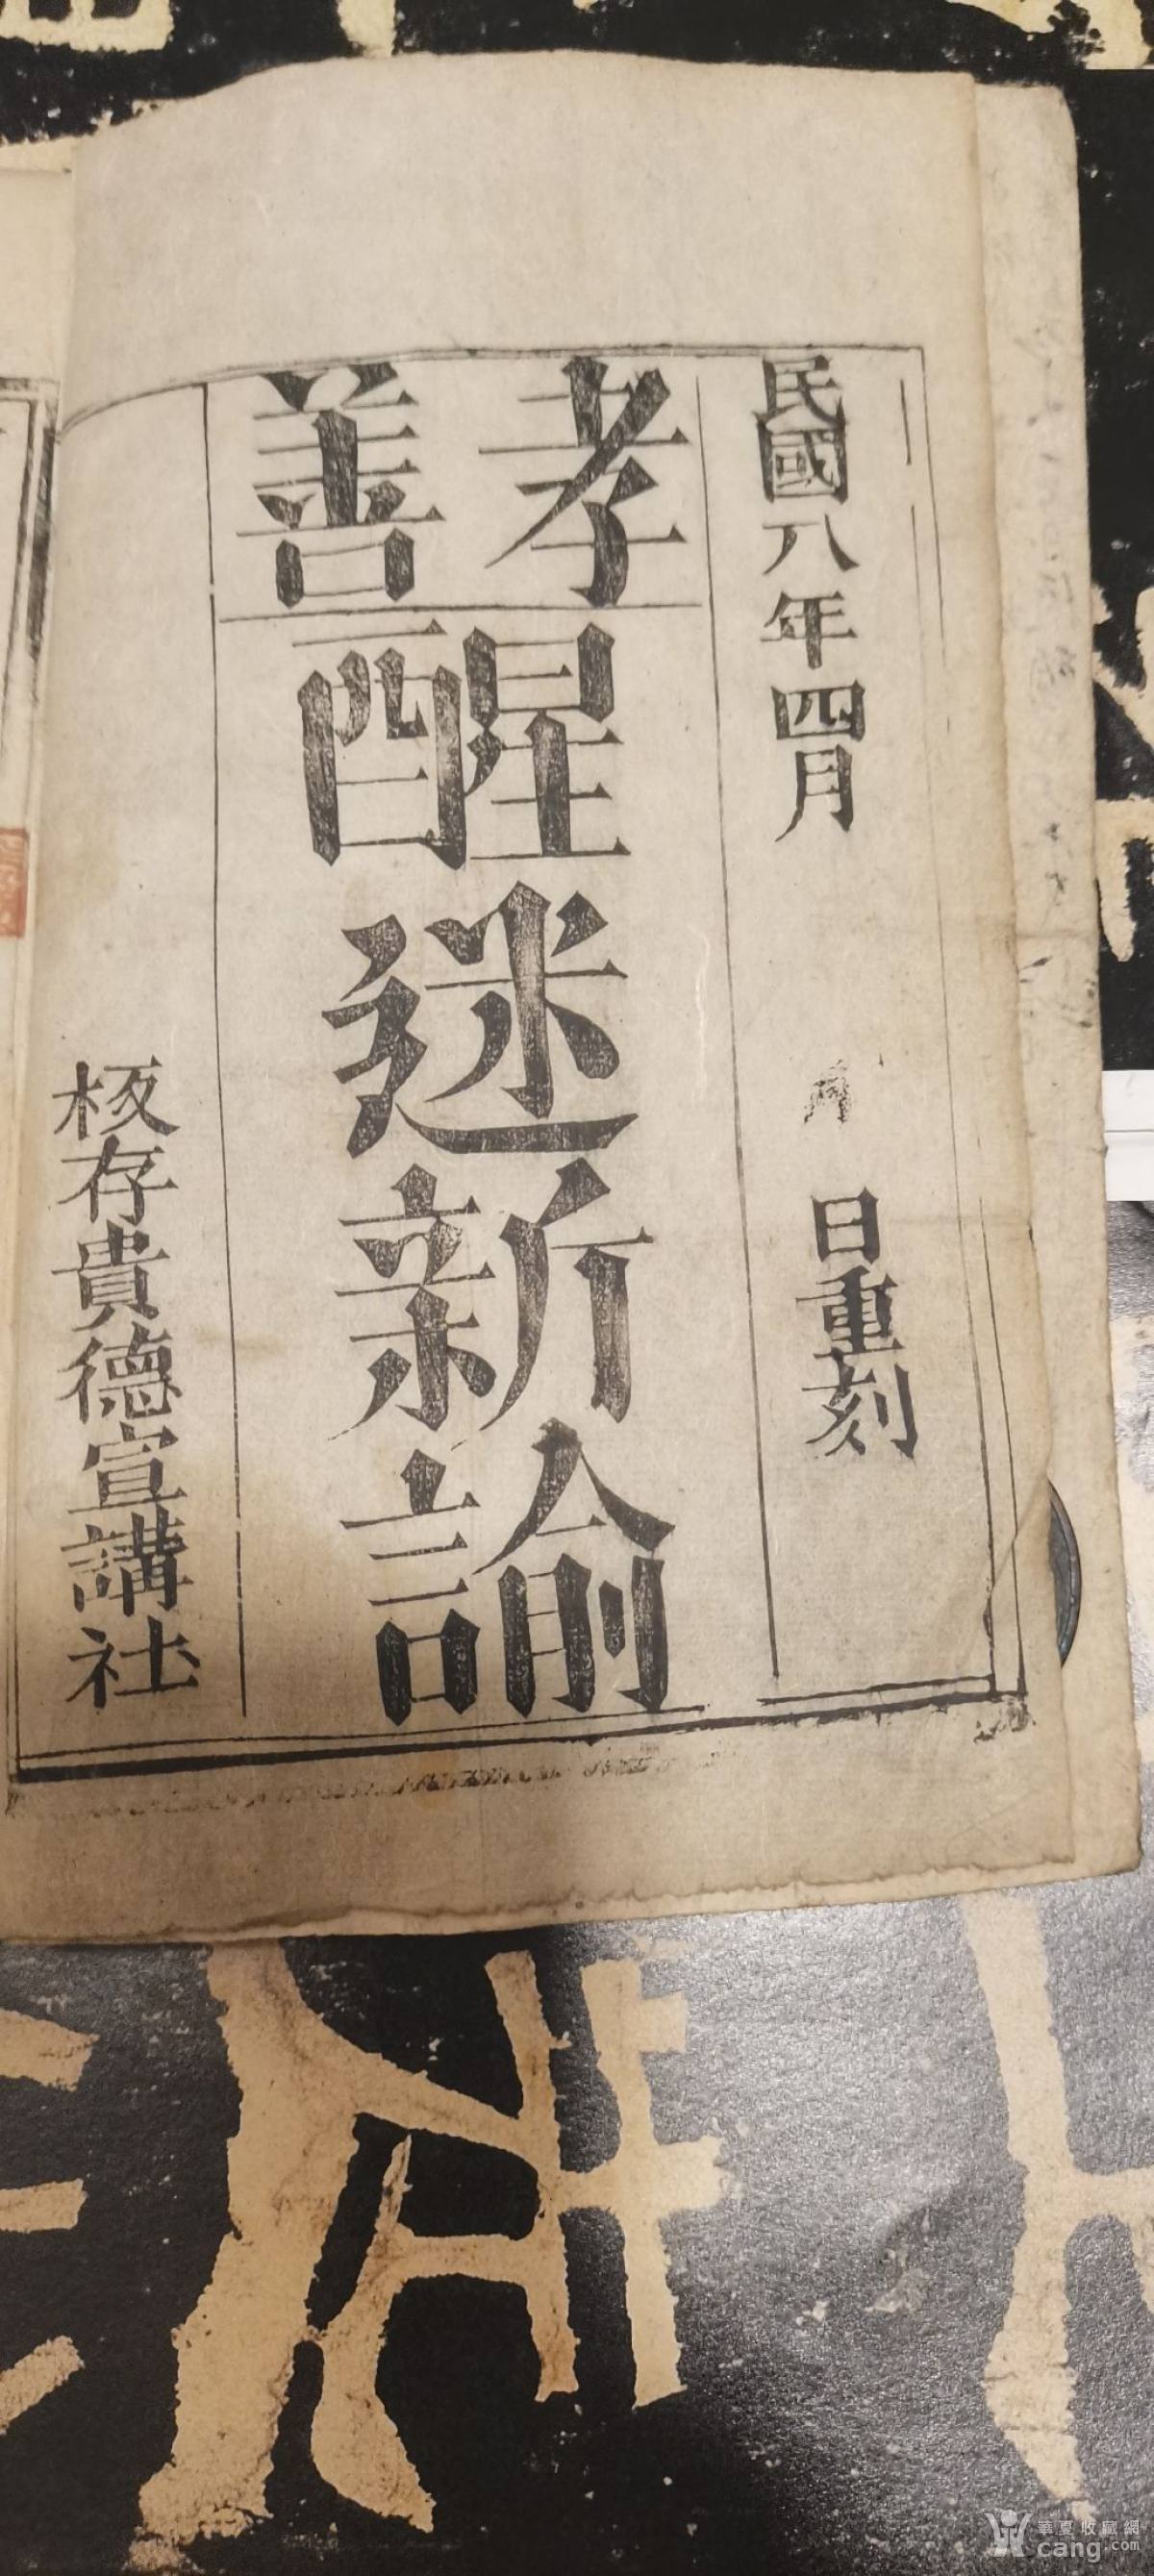 民國八年四月 日重刻
孝善
醒迷新諭
板存貴德宣講社
華夏收藏網
cang.com